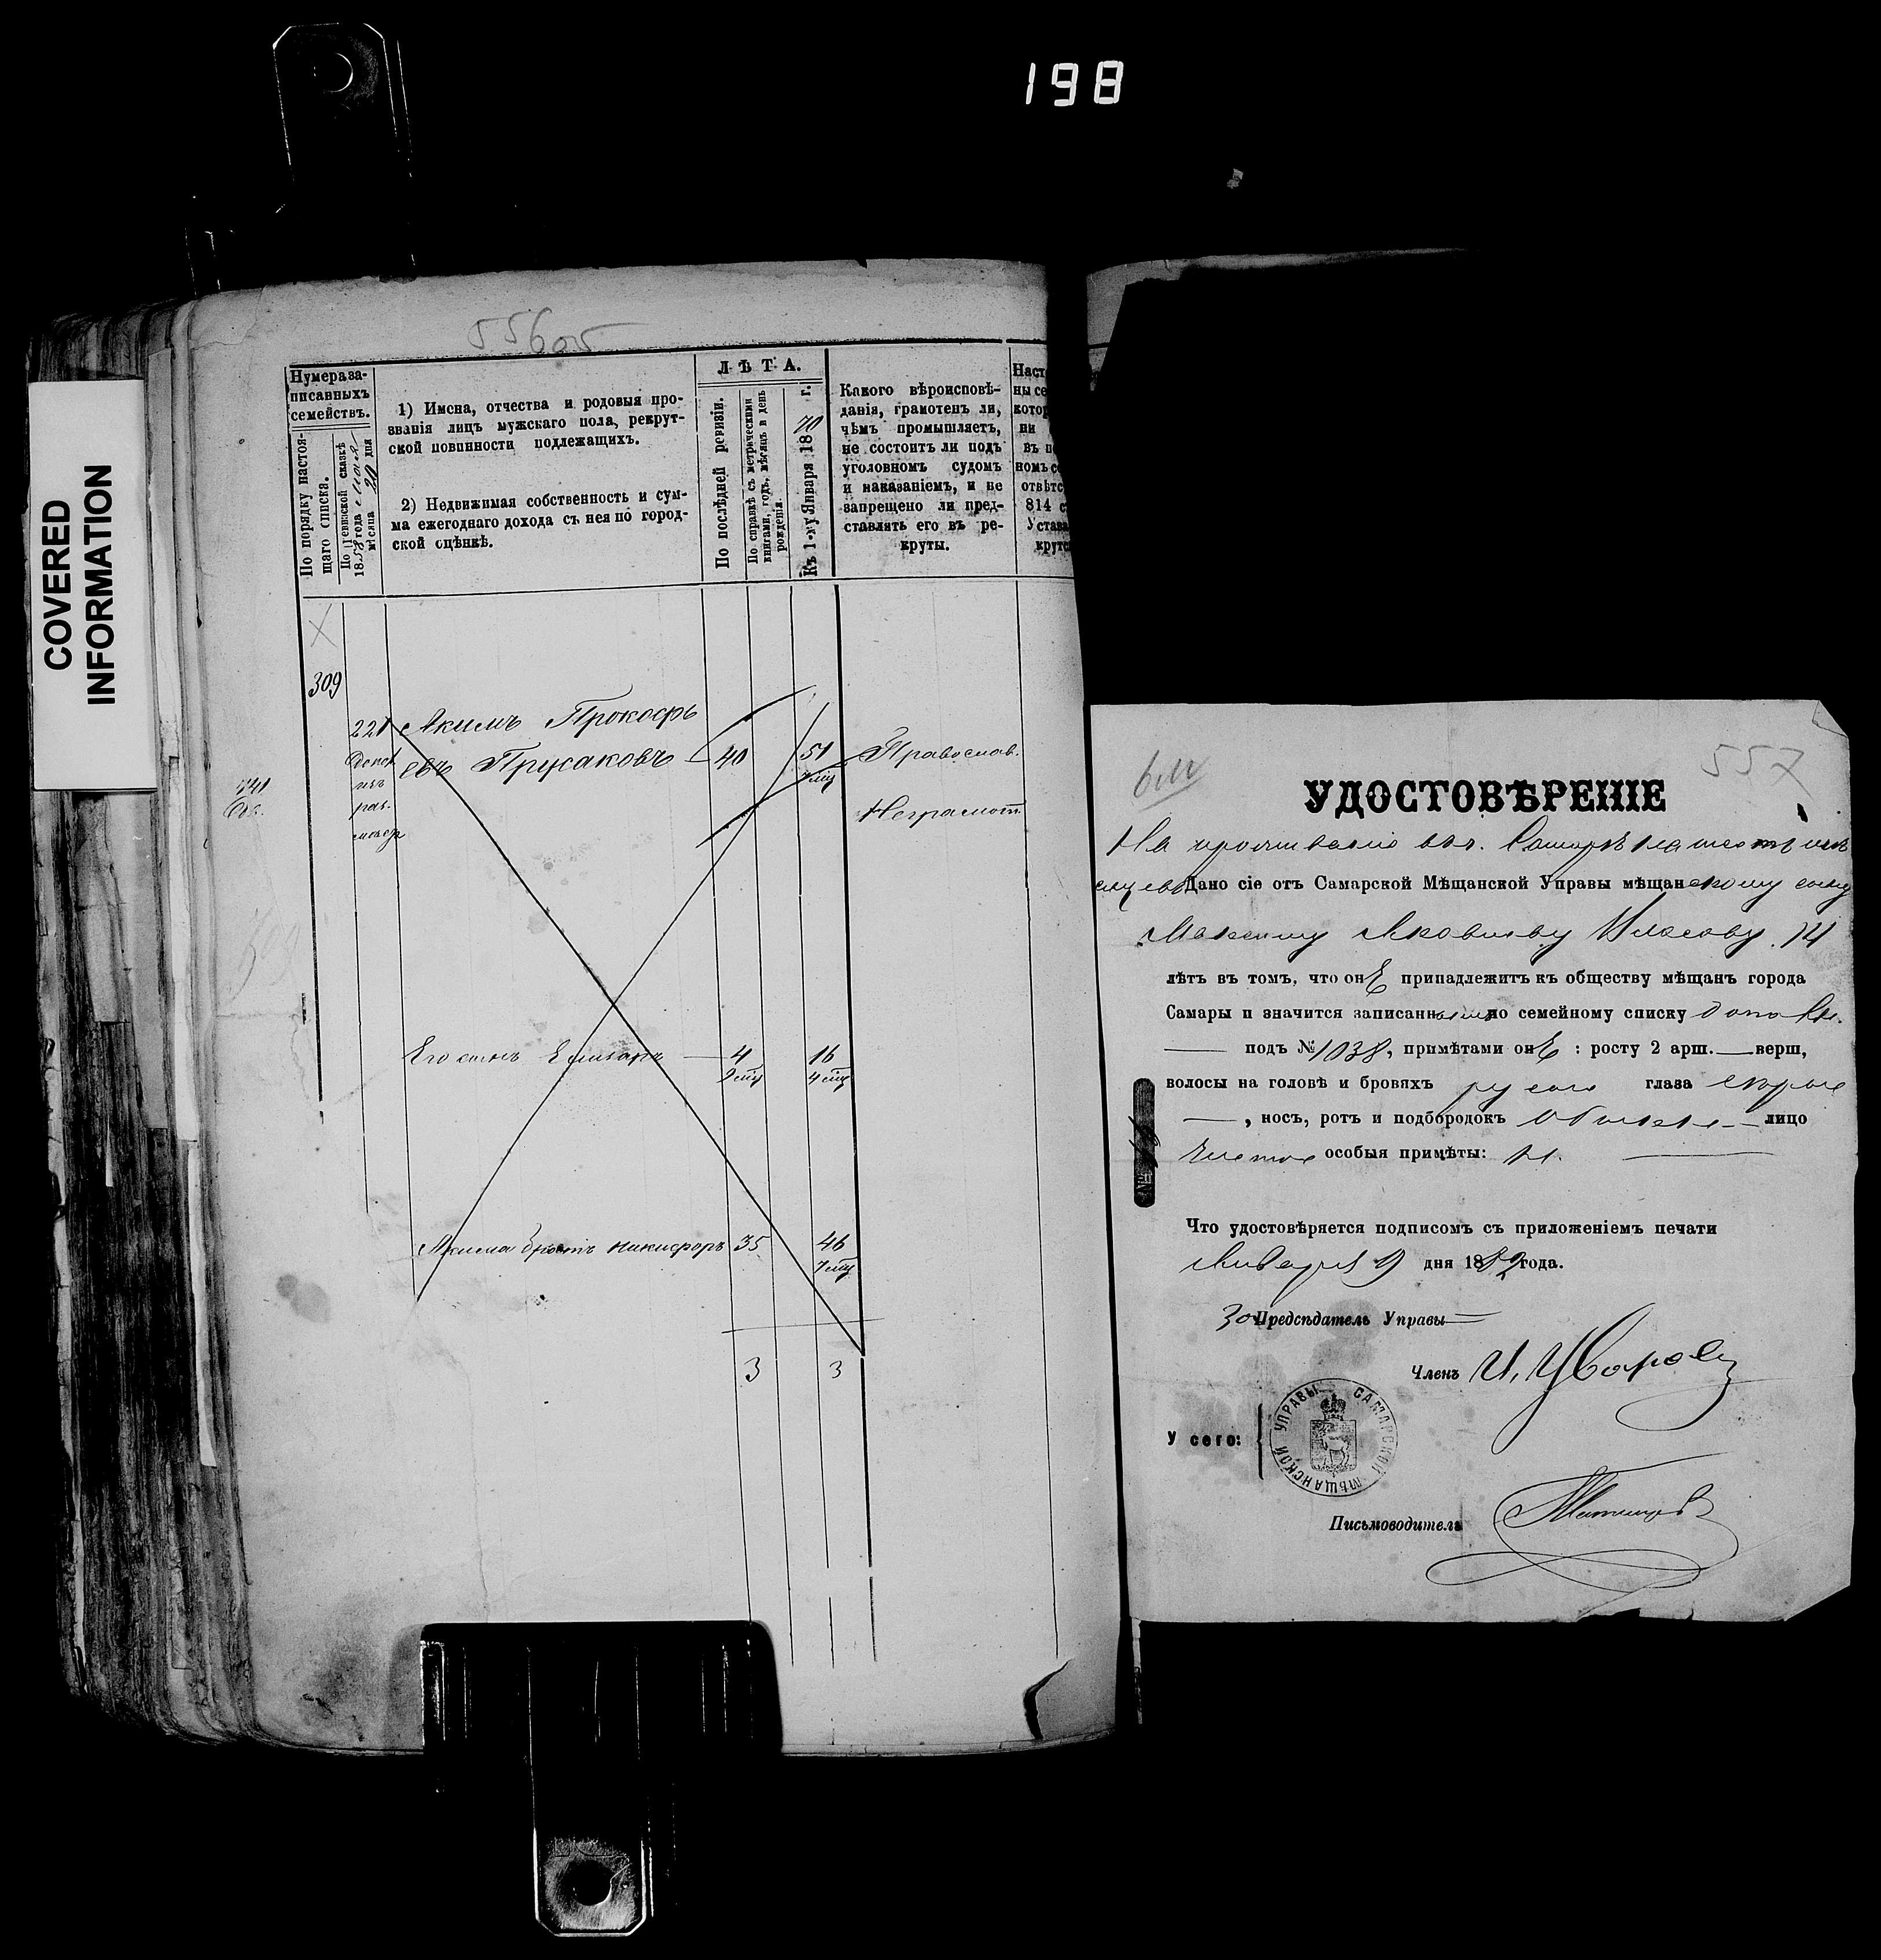 198
COVERED
INFORMATION
55605
Нумера за-
писанныхъ
семействъ.
По порядку настоя-
щаго списка.
По ревизской сказкѣ
1858 года
мѣсяца 20 дня
1) Имена, отчества и родовыя про-
званія лицъ мужскаго пола, рекрут-
ской повинности подлежащихъ.
2) Недвижимая собственность и сум-
ма ежегоднаго дохода съ нея по город-
ской оцѣнкѣ.
ЛѢТА.
По послѣдней ревизіи.
По справкѣ съ метрическими
книгами, годъ, мѣсяцъ и день
рожденія.
Къ 1-му Января 1870 г.
Какого вѣроисповѣ-
данія, грамотенъ ли,
чѣмъ промышляетъ,
не состоитъ ли подъ
уголовномъ судомъ
и наказаніемъ, и не
запрещено ли пред-
ставлять его въ ре-
круты.
Наст
ны се
котор
ни
въ п
номъ с
отвѣтс
814 с
Устав
крутс
309
221 Акимъ Прокофь
евъ Прусаковъ 40 51 Православ.
изъ 7 мц
Неграмот.
541
Его сынъ Елизаръ 4 16
9 мц 4 мц
Акима братъ Никифоръ 35 46
7 мц
3 3
557
УДОСТОВѢРЕНІЕ
На проживаніе въ г. Самарѣ на шесть мѣ
сяцевъ Дано сіе отъ Самарской Мѣщанской Управы мѣщанскому сыну
Максиму Яковлеву Власову 14
лѣтъ въ томъ, что онъ принадлежитъ къ обществу мѣщанъ города
Самары и значится записаннымъ по семейному списку
подъ № 1038, примѣтами онъ: росту 2 арш. — верш,
волосы на головѣ и бровяхъ русые глаза сѣрые
—, носъ, ротъ и подбородокъ обыкн. — лицо
чистое особыя примѣты: н.
Что удостовѣряется подписомъ съ приложеніемъ печати
Января 9 дня 1882 года.
За Предсѣдатель Управы
Членъ И. Уваровъ
У сего:
САМАРСКОЙ МѢЩАНСКОЙ УПРАВЫ
Письмоводитель